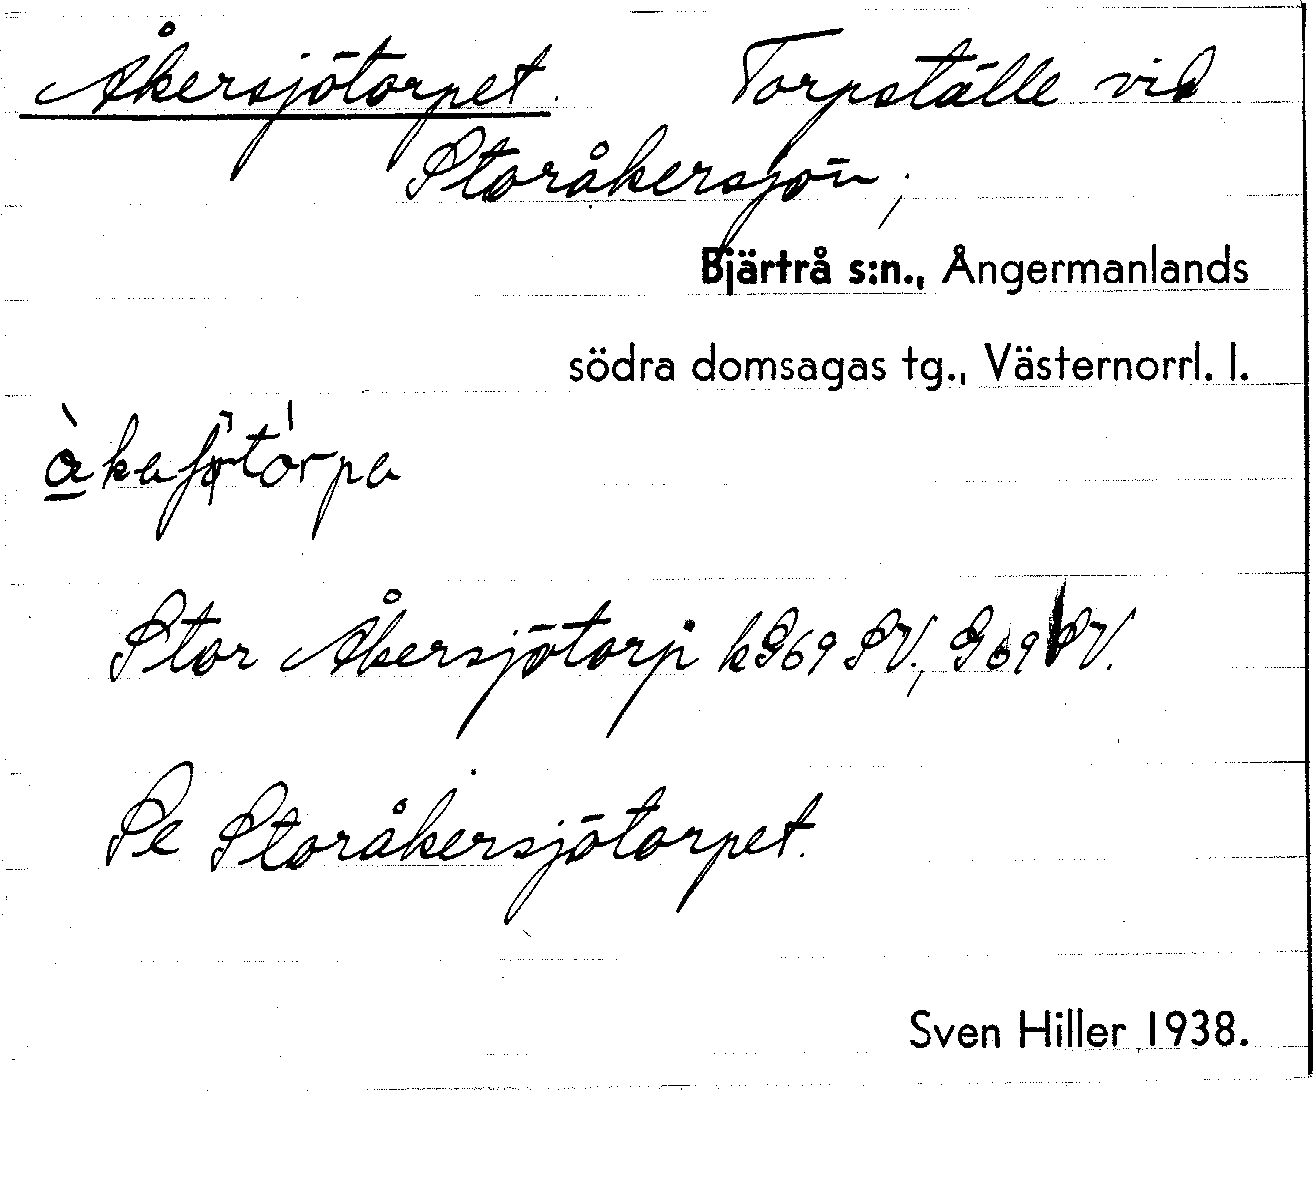 Åkersjötorpet. Torpställe vid
Storåkersjön,
Bjärtrå s:n., Ångermanlands
södra domsagas tg., Västernorrl. l.
Stor Åkersjötorp k969 SV., 969 SV.
Se Storåkersjötorpet.
Sven Hiller 1938.